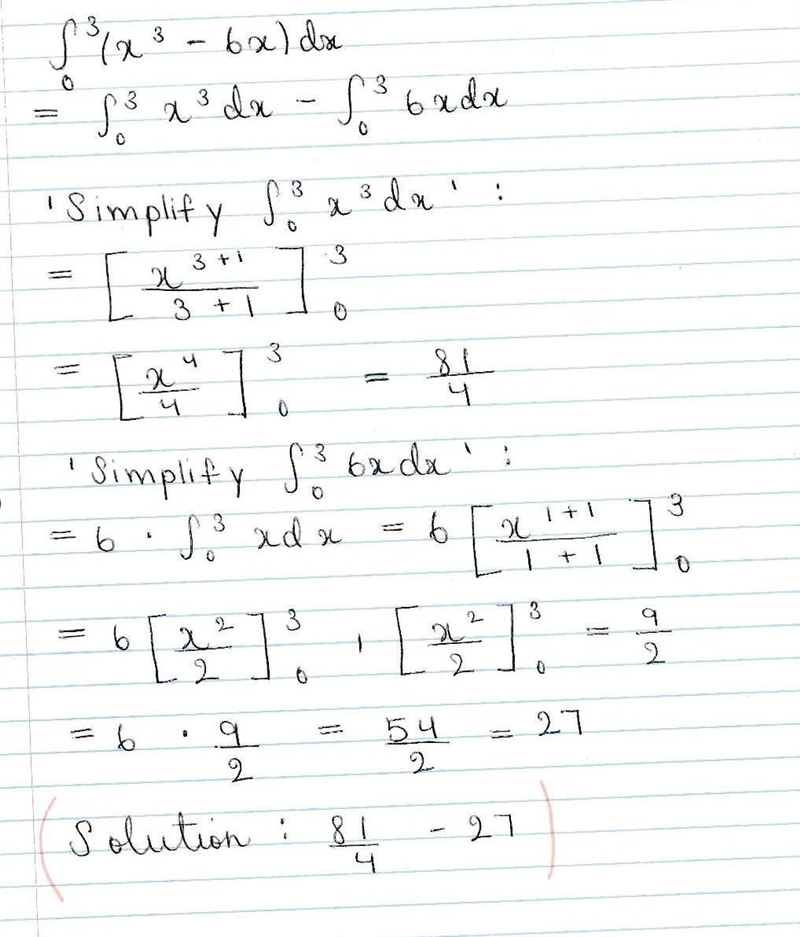 ∫₀³ (x³ − 6x) dx
= ∫₀³ x³ dx − ∫₀³ 6x dx
'Simplify ∫₀³ x³ dx' :
= [x³⁺¹ / 3 + 1]₀³
= [x⁴/4]₀³ = 81/4
'Simplify ∫₀³ 6x dx' :
= 6 · ∫₀³ x d x = 6 [x¹⁺¹ / 1 + 1]₀³
= 6 [x²/2]₀³ , [x²/2]₀³ = 9/2
= 6 · 9/2 = 54/2 = 27
(Solution : 81/4 − 27)